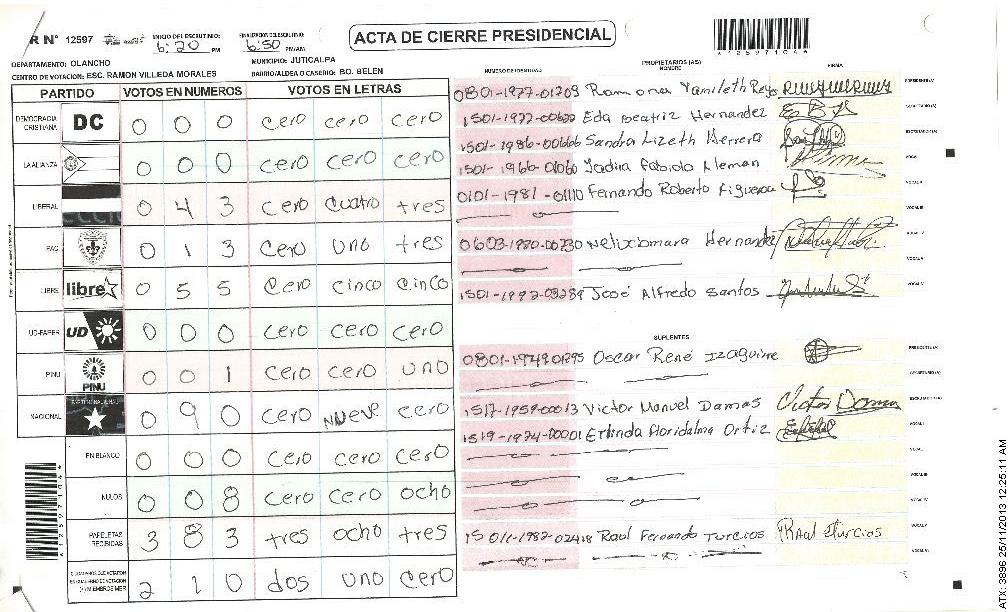 R N° 12597
INICIO DEL ESCRUTINIO: 6:20 PM
FINALIZACION ESCRUTINIO: 6:50 PM/AM
ACTA DE CIERRE PRESIDENCIAL
DEPARTAMENTO: OLANCHO
MUNICIPIO: JUTICALPA
CENTRO DE VOTACION: ESC. RAMON VILLEDA MORALES
BARRIO/ALDEA O CASERIO: BO. BELEN
PARTIDO VOTOS EN NUMEROS VOTOS EN LETRAS
DEMOCRACIA CRISTIANA DC 0 0 0 cero cero cero
LA ALIANZA 0 0 0 cero cero cero
LIBERAL 0 4 3 cero cuatro tres
PAC 0 1 3 cero uno tres
LIBRE libre 0 5 5 cero cinco cinco
UD-FAPER UD 0 0 0 cero cero cero
PINU PINU 0 0 1 cero cero uno
NACIONAL PARTIDO NACIONAL 0 9 0 cero nueve cero
EN BLANCO 0 0 0 cero cero cero
NULOS 0 0 8 cero cero ocho
PAPELETAS RECIBIDAS 3 8 3 tres ocho tres
2 1 0 dos uno cero
NUMERO DE IDENTIDAD PROPIETARIOS (AS) NOMBRE FIRMA
0801-1977-01209 Ramona Yamileth Reyes
1501-1977-00620 Eda Beatriz Hernandez
1501-1986-00666 Sandra Lizeth Herrera
1501-1966-01060 Yadira Fabiola Aleman
0101-1981-01110 Fernando Roberto Figueroa
0603-1980-00730 Nelixiomara Hernandez
1501-1992-03289 José Alfredo Santos
SUPLENTES
0801-1974901295 Oscar René Izaguirre
1517-1959-00013 Victor Manuel Damas Victor Damas
1519-1974-00001 Erlinda Floridalma Ortiz
1501-1982-02418 Raul Fernando Turcios Raul Turcios
PRESIDENTE (A)
SECRETARIO (A)
ESCRUTADOR (A)
VOCAL I
VOCAL II
VOCAL III
VOCAL IV
VOCAL V
VOCAL VI
ATX: 3896 25/11/2013 12:25:11 AM